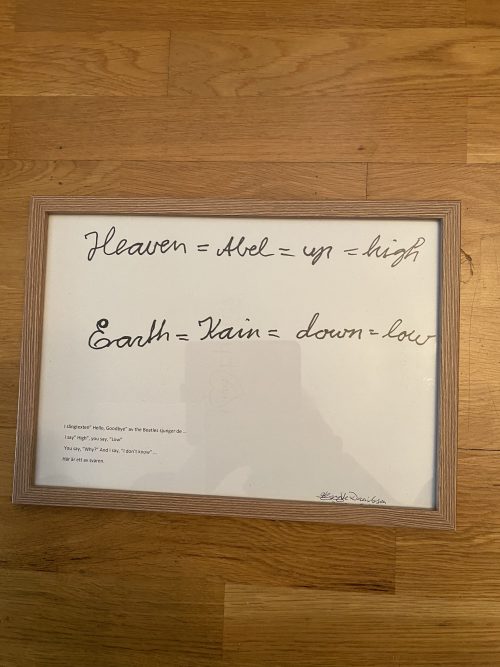 Heaven = Abel = up = high
Earth = Kain = down = low
I sångtexten" Hello, Goodbye" av the Beatles sjunger de ...
I say" High", you say, "Low"
You say, "Why?" And I say, "I don't know" ...
Här är ett av svaren.